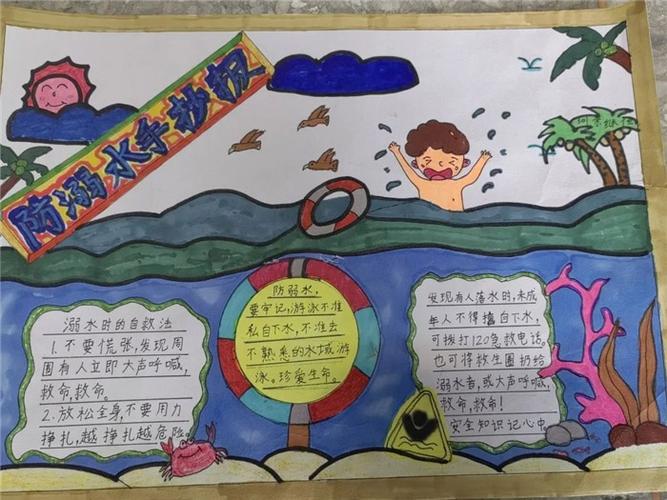 防溺水手抄报
溺水时的自救法
1.不要慌张,发现周
围有人立即大声呼喊,
救命,救命。
2.放松全身,不要用力
挣扎,越挣扎越危险。
防弱水,
要牢记,游泳不准
私自下水,不准去
不熟悉的水域游
泳。珍爱生命。
发现有人落水时,未成
年人不得擅自下水,
可拨打120急救电话
也可将救生圈扔给
溺水者,或大声呼喊,
救命,救命!
安全知识记心中